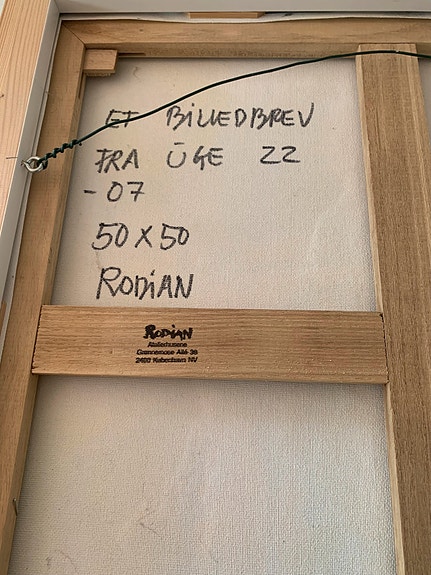 ET BILLEDBREV
FRA UGE 22
- 07
50 X 50
RODIAN
RODIAN
Atelierhusene
Grønnemose Allé 36
2400 København NV